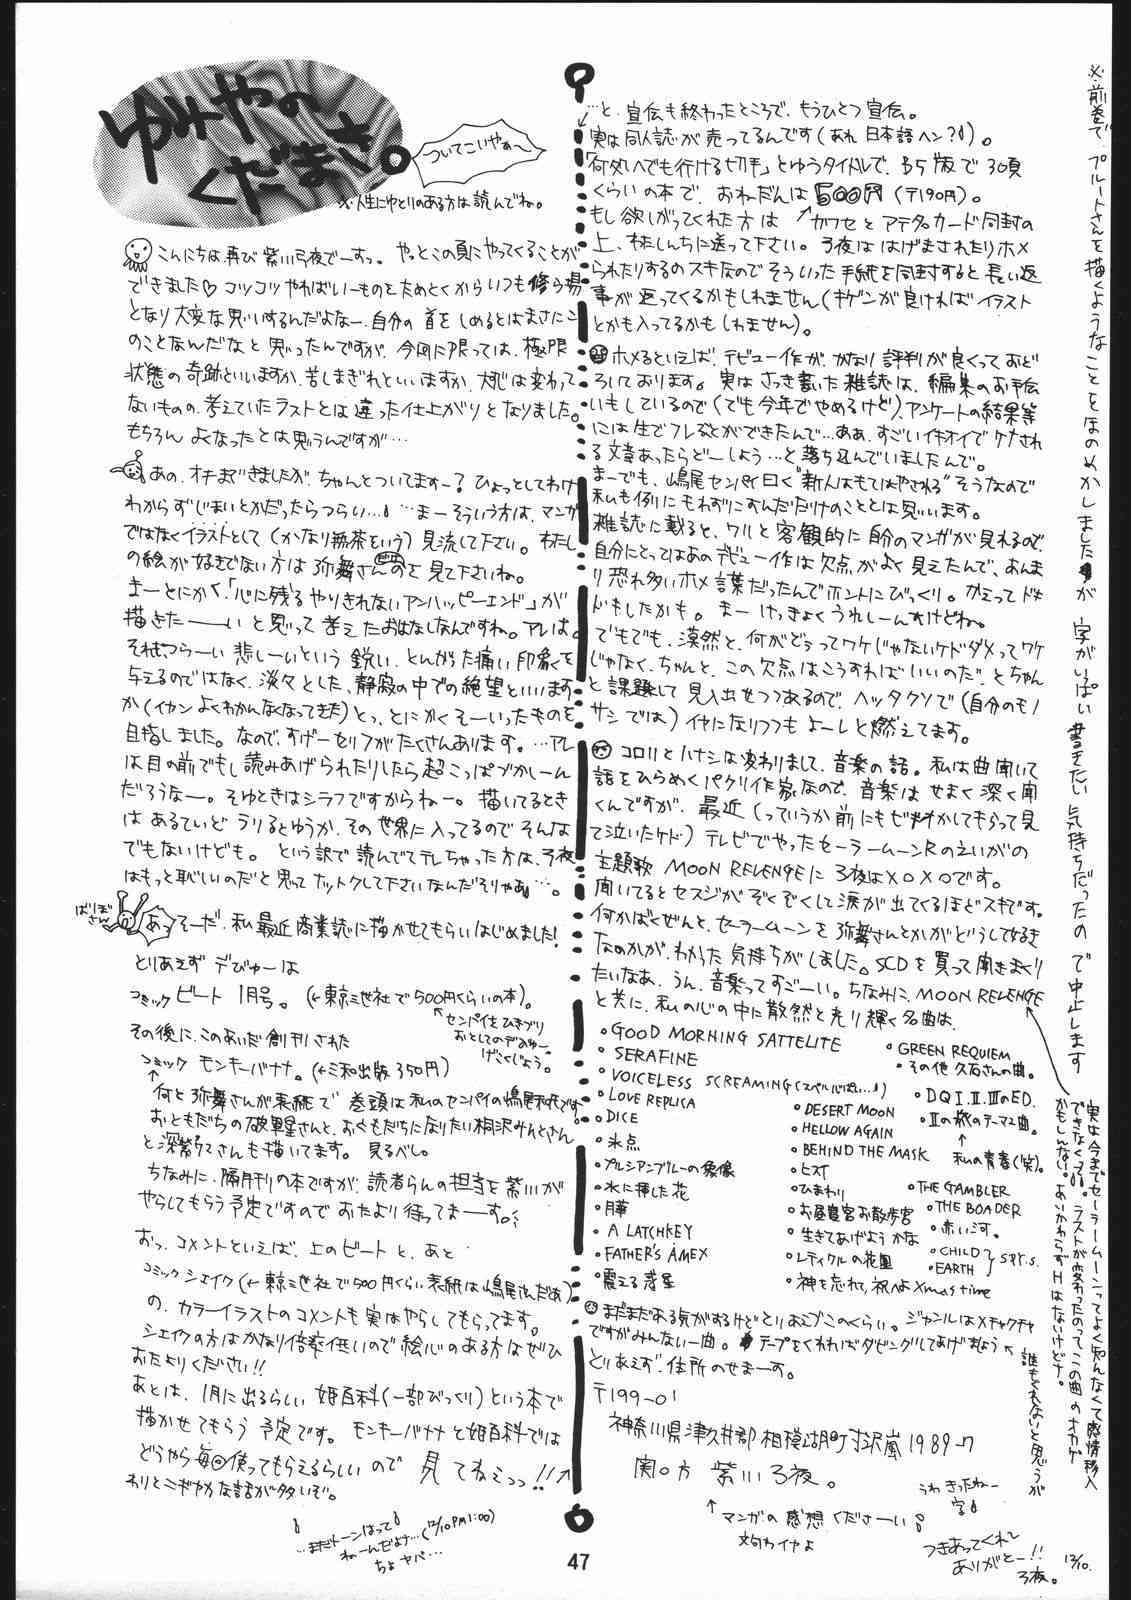 ゆみやの
くだまき。
ついてこいやぁ〜
※人生にゆとりのある方は読んでね。
こんにちは、再び紫川弓夜でーすっ。やっとこの頁にやってくることが
できました♡コツコツやればいーものをためとくからいつも修ラ場
となり大変な思いするんだよなー、自分の首をしめるとはまさにこ
のことなんだなと思ったんですが、今回に限っては、極限
状態の奇跡といいますか、苦しまぎれといいますか、大体は変わって
ないものの、考えていたラストとは違った仕上がりとなりました。
もちろん よくなったとは思うんですが…
わからずじまいとかだったらつらい…♪ …まーそういう方は、マンガ
ではなくイラストとして(かなり無茶をいう)見流して下さい。わたし
の絵が好きでない方は弥舞さんのを見て下さいね。
まーとにかく、「心に残るやりきれないアンハッピーエンド」が
描きたーーいと思って考えたおはなしなんですね。アレは。
それはつらーい悲しーいという鋭い、とんがった痛い印象を
与えるのではなく、淡々とした、静寂の中での絶望といいます
か(イカンよくわかんなくなってきた)とっ、とにかくそーいったものを
目指しました。なので、すげーセリフがたくさんあります。…アレ
は目の前でもし読みあげられたりしたら超こっぱづかしーん
だろうなー。そゆときはシラフですからねー。描いてるとき
はあるていどラリるとゆうか、その世界に入ってるのでそんな
でもないけども。という訳で読んでてテレちゃった方は、弓夜
はもっと恥しいのだと思ってナットクして下さいなんだそりゃあ♪…。
ぱりぽさん
あっそーだ、私最近商業誌に描かせてもらいはじめました!
とりあえずデびゅーは
コミックビート 1月号。(←東京三世社で500円くらいの本)。
センパイをひきづり
おとしてのデびゅー。
げこくじょう。
その後に、このあいだ創刊された
コミック モンキーバナナ。(←三和出版350円)
何と弥舞さんが表紙で 巻頭は私のセンパイの嶋尾和さんです。
と深紫クマさんも描いてます。見るべし。
ちなみに、隔月刊の本ですが、読者らんの担当を紫川が
やらしてもらう予定ですのでおたより待ってまーーす。
おっ、コメントといえば、上のビートと、あと
コミックシェイク(←東京三世社で500円くらい表紙は嶋尾さんだあ)
の、カラーイラストのコメントも実はやらしてもらってます。
シェイクの方はかなり倍率低いので絵心のある方はぜひ
おたよりください!!
あとは、1月に出るらしい 姫百科(一部びっくり)という本で
描かせてもらう予定です。モンキーバナナと姫百科では
どうやら毎回使ってもらえるらしいので見てねえっっ!!
わりとニギやかな話が多いぞ。
…まだトーンはって
ねーんだよな…(12/10PM1:00)
ちょヤバ…
…と、宣伝も終わったところで、もうひとつ宣伝。
実は同人誌が売ってるんです(あれ日本語ヘン?♪)。
「何処へでも行ける切手」とゆうタイトルで、B5版で30頁
くらいの本で、おねだんは500円(〒190円)。
もし欲しがってくれた方は カワセとアテ名カード同封の
上、わたしんちに送って下さい。弓夜ははげまされたりホメ
られたりするのスキなのでそういった手紙を同封すると長い返
事が返ってくるかもしれません(キゲンが良ければイラスト
とかも入ってるかもしれません)。
ホメるといえば、デビュー作が、かなり評判が良くっておど
ろいております。実はさっき書いた雑誌は、編集のお手伝
いもしているので(でも今年でやめるけど)、アンケートの結果等
には生でフレることができたんで…ああ、すごいイキオイでケナされ
る文章あったらどーしよう…と落ち込んでいましたんで。
まーでも、嶋尾センパイ曰く“新人はもてはやされる”そうなので
私も例にもれずにすんだだけのこととは思います。
雑誌に載ると、ワリと客観的に自分のマンガが見れるので、
自分にとってはあのデビュー作は欠点がよく見えたんで、あんま
り恐れ多いホメ言葉だったんでホントにびっくり。かえってドキ
ドキしたかも。まー けっきょくうれしーんすけどね。
でもでも、漠然と、何がどぅってワケじゃないケドダメってワケ
じゃなく、ちゃんと、この欠点はこうすればいいのだ、とちゃん
と課題として見入出せつつあるので、ヘッタクソで(自分のモノ
サシでは)イヤになりつつもよーしと燃えてます。
コロリとハナシは変わりまして、音楽の話。私は曲聞いて
話をひらめくパクリ作家なので、音楽はせまく深く聞
くんですが、最近(っていうか前にもビデオかしてもらって見
て泣いたケド)テレビでやったセーラームーンRのえいがの
主題歌 MOON REVENGEに弓夜はメロメロです。
聞いてるとセスジがぞくぞくして涙が出てくるほどスキです。
何かばくぜんと、セーラームーンを弥舞さんとかがどうして好き
なのかが、わかった気持ちがしました。SCDを買って聞きまくり
たいなあ。うん、音楽ってすごーい。ちなみに、MOON REVENGE
と共に、私の心の中に散然と光り輝く名曲は、
• GOOD MORNING SATTELITE
• SERAFINE
• VOICELESS SCREAMING(スペル心ぱい…♪)
• LOVE REPLICA
• DICE
• 氷点
• プルシアンブルーの肖像
• 水に挿した花
• 月華
• A LATCHKEY
• FATHER'S AMEX
• 震える惑星
• GREEN REQUIEM
• その他 久石さんの曲。
• DESERT MOON
• HELLOW AGAIN
• BEHIND THE MASK
• ヒスイ
• ひまわり
• お昼寝宮お散歩宮
• 生きてあげようかな
• レティクルの花園
• 神を忘れて、祝えよXmas time
• DQ I.II.IIIのED.
• IIの旅のテーマ2曲。
私の青春(笑)。
• THE GAMBLER
• THE BOADER
• 赤い河。
• CHILD
• EARTH
S.P.Y.S.
まだまだある気がするけどとりあえずこのくらい。ジャンルはメチャクチャ
ですがみんないー曲。テープをくれればダビングしてあげましょう
誰もくれないと思うが
とりあえず、住所のせまーす。
〒199-01
神奈川県津久井郡相模湖町寸沢嵐1989-7
関口方 紫川弓夜。
マンガの感想くださーい♪
文句わイヤよ
うわ きったねー
字♪
つきあってくれて
ありがとー!!
弓夜。
12/10.
※前巻で、プルートさんを描くようなことをほのめかしましたが 字がいっぱい書きたい気持ちだったので中止します
実は今までセーラームーンってよく知んなくて感情移入
できなくって♪♪。ラストが変わったのってこの曲のオカゲ
かもしんない。あいかわらずHはないけどナ。
47